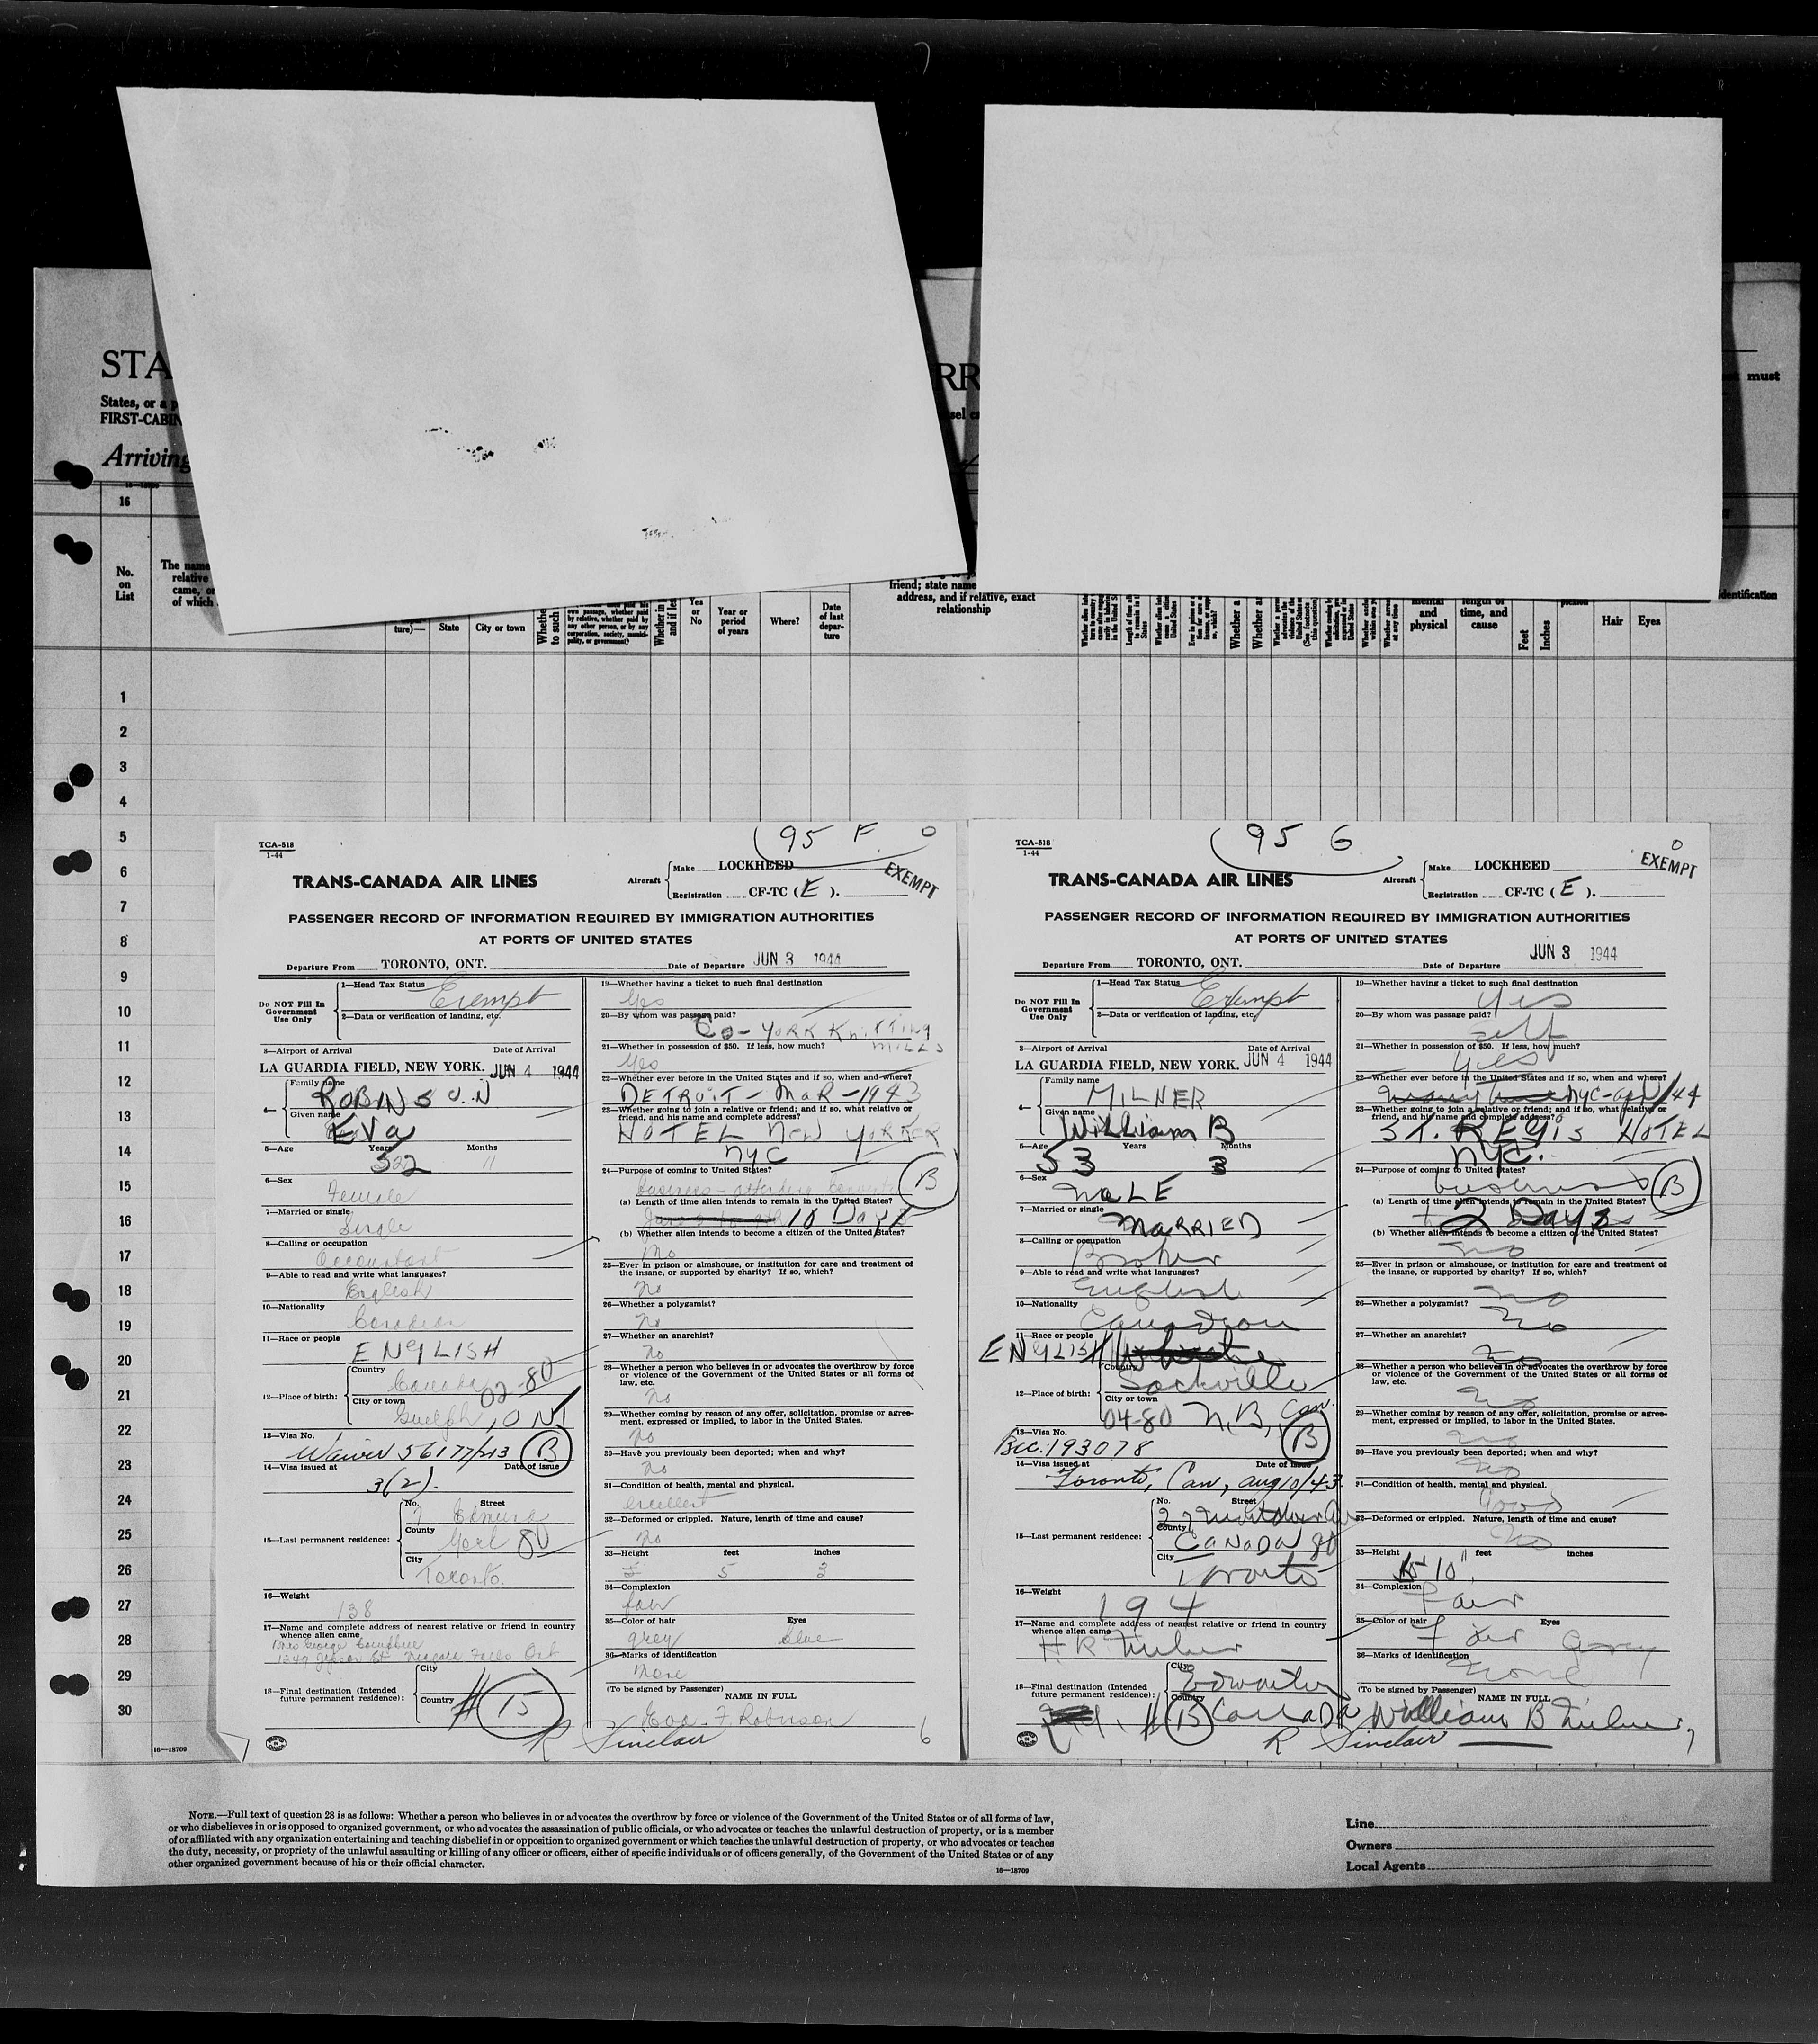 STA
RR
must
States, or a p
sel ca
FIRST-CABIN
Arriving
16
No.
on
List
The name
relative
came, or
of which
ture)—
State
City or town
Yes
or
No
Year or
period
of years
Where?
Date
of last
depar-
ture
friend; state name
address, and if relative, exact
relationship
mental
and
physical
length of
time, and
cause
Feet
Inches
Hair
Eyes
identification
1
2
3
4
5
6
7
8
9
10
11
12
13
14
15
16
17
18
19
20
21
22
23
24
25
26
27
28
29
30
16—18709
TCA-518
1-44
95 F
EXEMPT
TRANS-CANADA AIR LINES
Aircraft
Make LOCKHEED
Registration CF-TC (E).
PASSENGER RECORD OF INFORMATION REQUIRED BY IMMIGRATION AUTHORITIES
AT PORTS OF UNITED STATES
Departure From TORONTO, ONT. Date of Departure JUN 3 1944
Do NOT Fill In
Government
Use Only
1—Head Tax Status Exempt
2—Data or verification of landing, etc.
3—Airport of Arrival Date of Arrival
LA GUARDIA FIELD, NEW YORK. JUN 4 1944
4—
Family name
ROBINSON
Given name
Eva
5—Age Years Months
52 11
6—Sex
Female
7—Married or single
Single
8—Calling or occupation
Accountant
9—Able to read and write what languages?
English
10—Nationality
Canadian
11—Race or people
ENGLISH
12—Place of birth:
Country
Canada 02-80
City or town
Guelph, ONT
13—Visa No.
Waiver 56177/243 B
14—Visa issued at Date of issue
3(2).
15—Last permanent residence:
No. Street
7
County
York 80
City
Toronto
16—Weight
138
17—Name and complete address of nearest relative or friend in country
whence alien came
Mrs George
St Niagara Falls Ont
18—Final destination (Intended
future permanent residence):
City
Country
# 15
19—Whether having a ticket to such final destination
Yes
20—By whom was passage paid?
Co-YORK Knitting
MILLS
21—Whether in possession of $50. If less, how much?
Yes
22—Whether ever before in the United States and if so, when and where?
DETROIT - MAR - 1943
23—Whether going to join a relative or friend; and if so, what relative or
friend, and his name and complete address?
HOTEL New YORKER
nyc
24—Purpose of coming to United States?
business - attending B
(a) Length of time alien intends to remain in the United States?
10 Days
(b) Whether alien intends to become a citizen of the United States?
No
25—Ever in prison or almshouse, or institution for care and treatment of
the insane, or supported by charity? If so, which?
No
26—Whether a polygamist?
No
27—Whether an anarchist?
no
28—Whether a person who believes in or advocates the overthrow by force
or violence of the Government of the United States or all forms of
law, etc.
No
29—Whether coming by reason of any offer, solicitation, promise or agree-
ment, expressed or implied, to labor in the United States.
no
30—Have you previously been deported; when and why?
no
31—Condition of health, mental and physical.
excellent
32—Deformed or crippled. Nature, length of time and cause?
no
33—Height feet inches
5 3
34—Complexion
fair
35—Color of hair Eyes
grey blue
36—Marks of identification
None
(To be signed by Passenger)
NAME IN FULL
Eva F. Robinson
R Sinclair
6
TCA-518
1-44
95 G
EXEMPT
TRANS-CANADA AIR LINES
Aircraft
Make LOCKHEED
Registration CF-TC (E).
PASSENGER RECORD OF INFORMATION REQUIRED BY IMMIGRATION AUTHORITIES
AT PORTS OF UNITED STATES
Departure From TORONTO, ONT. Date of Departure JUN 3 1944
Do NOT Fill In
Government
Use Only
1—Head Tax Status Exempt
2—Data or verification of landing, etc.
3—Airport of Arrival Date of Arrival
LA GUARDIA FIELD, NEW YORK. JUN 4 1944
4—
Family name
MILNER
Given name
William B
5—Age Years Months
53 3
6—Sex
MALE
7—Married or single
MARRIED
8—Calling or occupation
Broker
9—Able to read and write what languages?
English
10—Nationality
Canadian
11—Race or people
ENGLISH
12—Place of birth:
Country
Sackville
City or town
04-80 N.B, Can.
13—Visa No.
Bcc. 193078 B
14—Visa issued at Date of issue
Toronto, Can, Aug 10/43
15—Last permanent residence:
No. Street
27
County
CANADA 80
City
Toronto
16—Weight
194
17—Name and complete address of nearest relative or friend in country
whence alien came
H R Milner
18—Final destination (Intended
future permanent residence):
City
Edmonton
Country
# 15 Canada
19—Whether having a ticket to such final destination
Yes
20—By whom was passage paid?
self
21—Whether in possession of $50. If less, how much?
Yes
22—Whether ever before in the United States and if so, when and where?
NYC - apr/44
23—Whether going to join a relative or friend; and if so, what relative or
friend, and his name and complete address?
ST. REGIS HOTEL
NYC.
24—Purpose of coming to United States?
business B
(a) Length of time alien intends to remain in the United States?
2 Days
(b) Whether alien intends to become a citizen of the United States?
no
25—Ever in prison or almshouse, or institution for care and treatment of
the insane, or supported by charity? If so, which?
no
26—Whether a polygamist?
no
27—Whether an anarchist?
no
28—Whether a person who believes in or advocates the overthrow by force
or violence of the Government of the United States or all forms of
law, etc.
no
29—Whether coming by reason of any offer, solicitation, promise or agree-
ment, expressed or implied, to labor in the United States.
no
30—Have you previously been deported; when and why?
no
31—Condition of health, mental and physical.
Good
32—Deformed or crippled. Nature, length of time and cause?
no
33—Height feet inches
5 10"
34—Complexion
Fair
35—Color of hair Eyes
Fair Grey
36—Marks of identification
None
(To be signed by Passenger)
NAME IN FULL
William B Milner
R Sinclair
7
NOTE.—Full text of question 28 is as follows: Whether a person who believes in or advocates the overthrow by force or violence of the Government of the United States or of all forms of law,
or who disbelieves in or is opposed to organized government, or who advocates the assassination of public officials, or who advocates or teaches the unlawful destruction of property, or is a member
of or affiliated with any organization entertaining and teaching disbelief in or opposition to organized government or which teaches the unlawful destruction of property, or who advocates or teaches
the duty, necessity, or propriety of the unlawful assaulting or killing of any officer or officers, either of specific individuals or of officers generally, of the Government of the United States or of any
other organized government because of his or their official character.
16—18709
Line
Owners
Local Agents